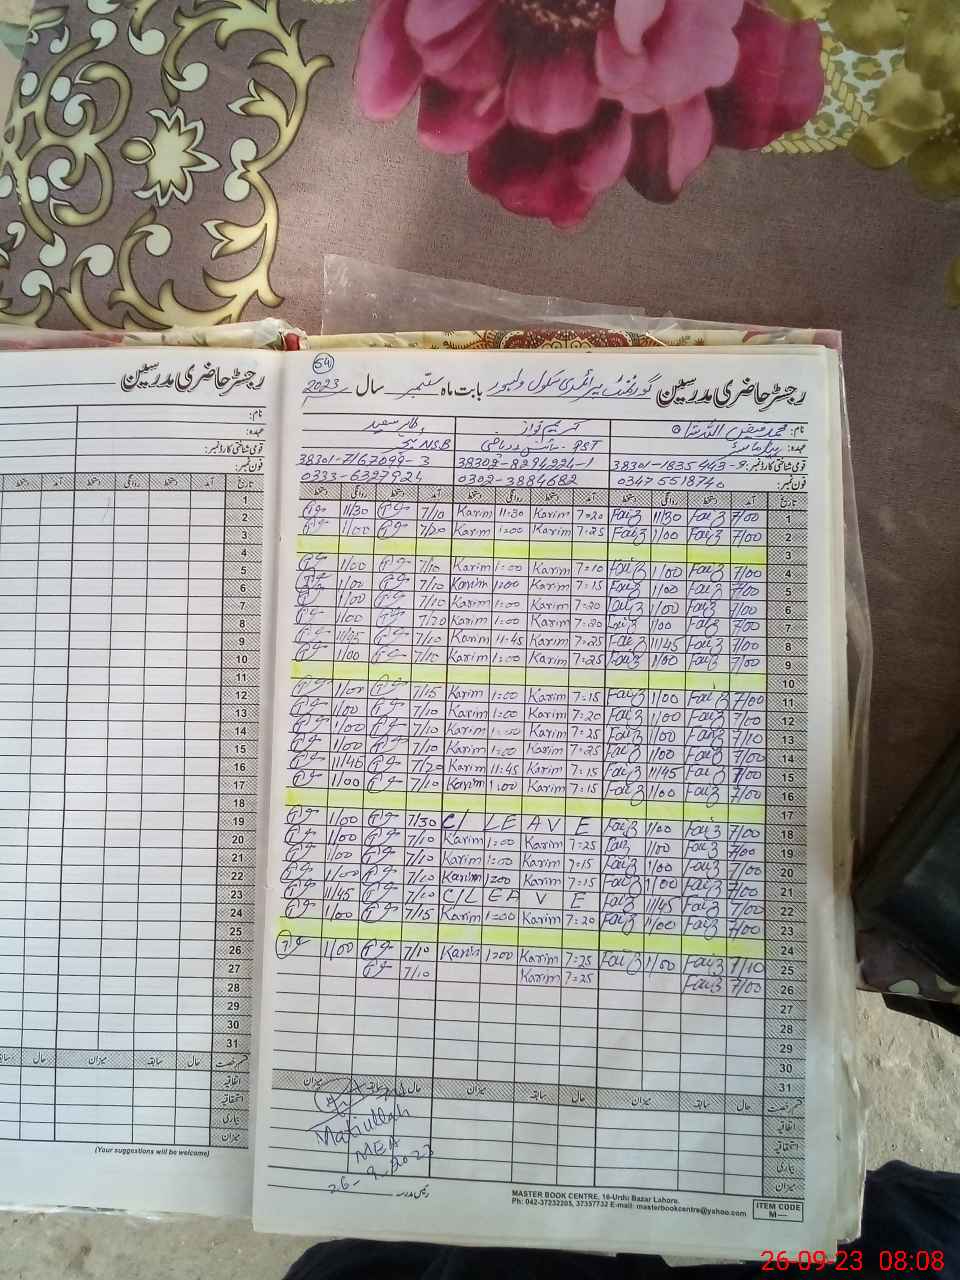 رجسٹر حاضری مدرسین
نام:
عہدہ:
قومی شناختی کارڈ نمبر:
فون نمبر:
تاریخ آمد دستخط روانگی دستخط آمد
1
2
3
4
5
6
7
8
9
10
11
12
13
14
15
16
17
18
19
20
21
22
23
24
25
26
27
28
29
30
31
قسم رخصت حال سابقہ میزان حال سابقہ
اتفاقیہ
استحقاقیہ
بیماری
میزان
(Your suggestions will be welcome)
54
رجسٹر حاضری مدرسین گورنمنٹ پرائمری سکول بابت ماہ ستمبر سال 2023
نام: محمد فیض طاہر سعید
عہدہ: PST N.S.B
قومی شناختی کارڈ نمبر: 38301-1835443-9 38302-8294224-1 38301-7167099-3
فون نمبر: 03475518740 0302-3884682 0333-6327924
تاریخ آمد دستخط روانگی دستخط آمد دستخط روانگی دستخط آمد دستخط روانگی دستخط
1 7/00 Faiz 11/30 Faiz 7=20 Karim 11:30 Karim 7/10 11/30
2 7/00 Faiz 1/00 Faiz 7=25 Karim 1:00 Karim 7/20 1/00
3
4 7/00 Faiz 1/00 Faiz 7=10 Karim 1:00 Karim 7/10 1/00
5 7/00 Faiz 1/00 Faiz 7=15 Karim 1:00 Karim 7/10 1/00
6 7/00 Faiz 1/00 Faiz 7=20 Karim 1:00 Karim 7/10 1/00
7 7/00 Faiz 1/00 Faiz 7=20 Karim 1:00 Karim 7/20 1/00
8 7/00 Faiz 11/45 Faiz 7=25 Karim 11-45 Karim 7/10 11/45
9 7/00 Faiz 1/00 Faiz 7=25 Karim 1:00 Karim 7/10 1/00
10
11 7/00 Faiz 1/00 Faiz 7=15 Karim 1:00 Karim 7/15 1/00
12 7/00 Faiz 1/00 Faiz 7=20 Karim 1:00 Karim 7/10 1/00
13 7/10 Faiz 1/00 Faiz 7=25 Karim 1:00 Karim 7/10 1/00
14 7/00 Faiz 1/00 Faiz 7=25 Karim 1:00 Karim 7/10 1/00
15 7/00 Faiz 11/45 Faiz 7=15 Karim 11:45 Karim 7/20 11/45
16 7/00 Faiz 1/00 Faiz 7=15 Karim 1:00 Karim 7/10 1/00
17
18 7/00 Faiz 1/00 Faiz C/ LEAVE 7/30 1/00
19 7/00 Faiz 1/00 Faiz 7=25 Karim 1:00 Karim 7/10 1/00
20 7/00 Faiz 1/00 Faiz 7=15 Karim 1:00 Karim 7/10 1/00
21 7/00 Faiz 1/00 Faiz 7=15 Karim 1:00 Karim 7/10 1/00
22 7/00 Faiz 11/45 Faiz C/LEAVE 7/10 11/45
23 7/00 Faiz 1/00 Faiz 7=20 Karim 1:00 Karim 7/15 1/00
24
25 7/10 Faiz 1/00 Faiz 7=25 Karim 1:00 Karim 7/10 1/00
26 7/00 Faiz 7=25 Karim 7/10
27
28
29
30
31
قسم رخصت حال سابقہ میزان حال سابقہ میزان حال سابقہ میزان
اتفاقیہ
استحقاقیہ
بیماری
میزان
Matiullah
MEA
26-9-2023
رئیس مدرسہ
MASTER BOOK CENTRE, 16-Urdu Bazar Lahore.
Ph: 042-37232205, 37357732 E-mail: masterbookcentre@yahoo.com
ITEM CODE
M—
26-09-23 08:08